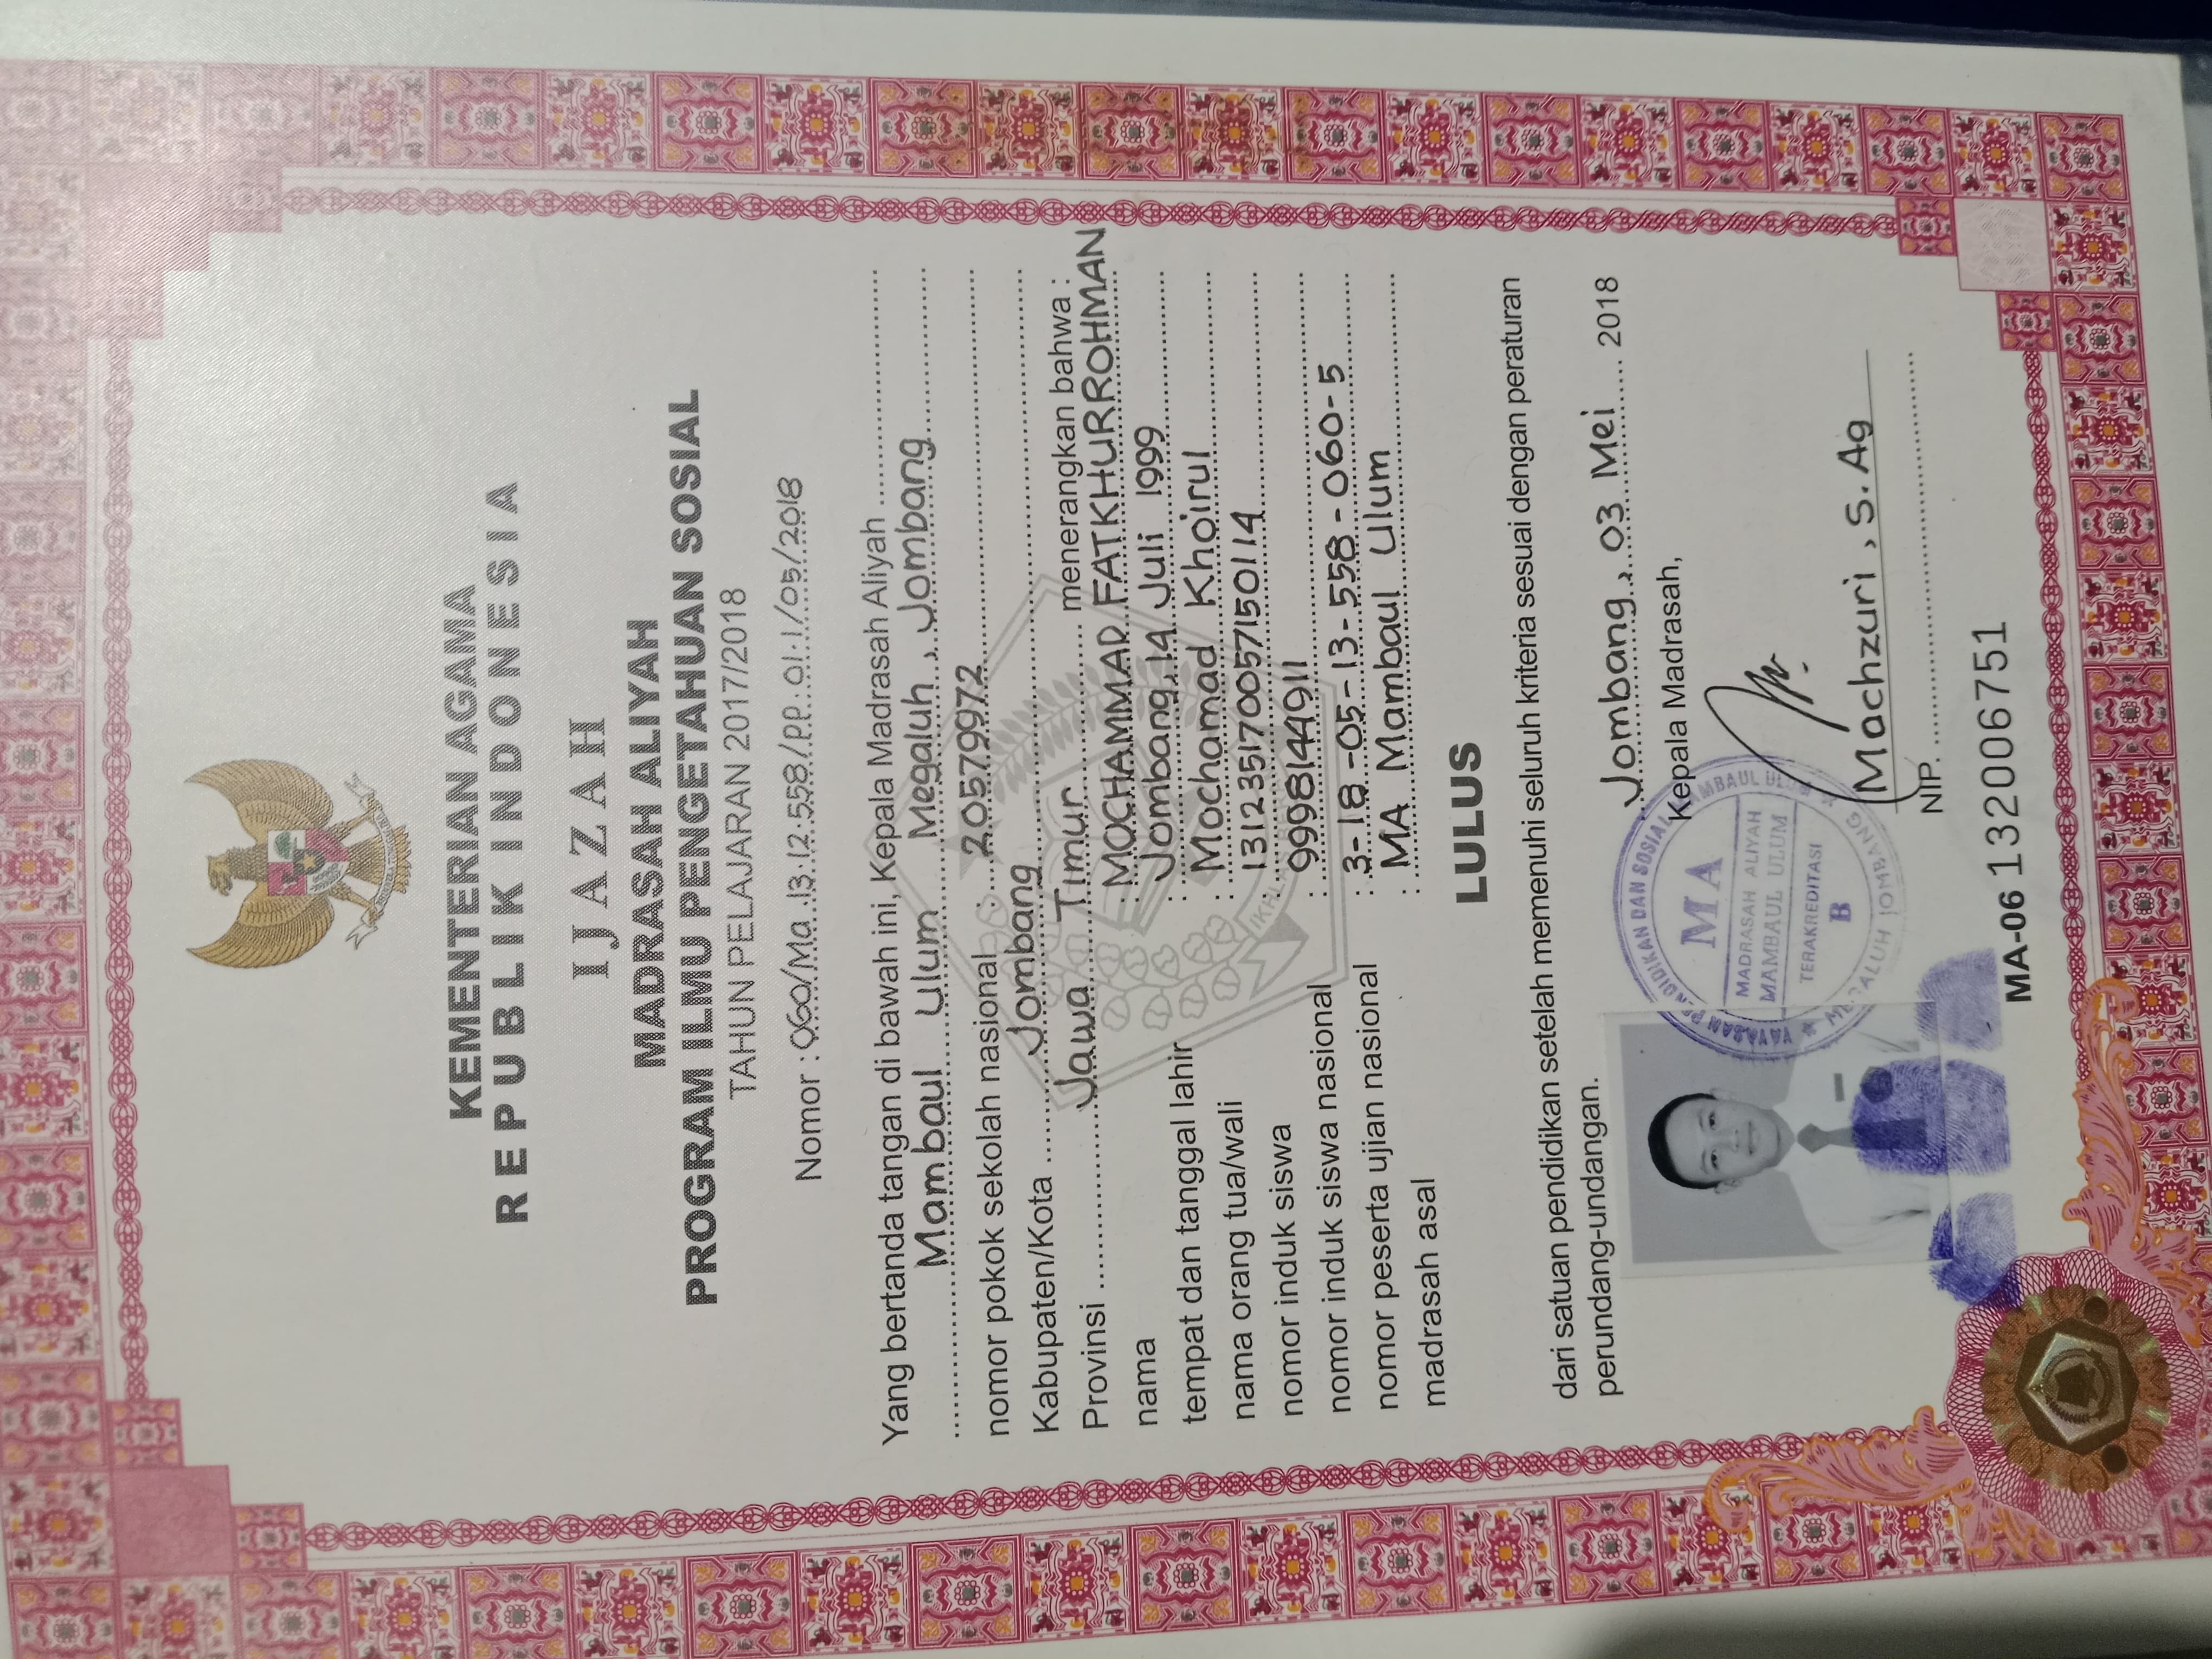 BHINNEKA TUNGGAL IKA
KEMENTERIAN AGAMA
REPUBLIK INDONESIA
IJAZAH
MADRASAH ALIYAH
PROGRAM ILMU PENGETAHUAN SOSIAL
TAHUN PELAJARAN 2017/2018
Nomor : 060/Ma.13.12.558/PP.01.1/05/2018
Yang bertanda tangan di bawah ini, Kepala Madrasah Aliyah
Mambaul Ulum Megaluh, Jombang
nomor pokok sekolah nasional : 20579972
Kabupaten/Kota Jombang
Provinsi Jawa Timur menerangkan bahwa :
nama : MOCHAMMAD FATKHURROHMAN
tempat dan tanggal lahir : Jombang, 14 Juli 1999
nama orang tua/wali : Mochamad Khoirul
nomor induk siswa : 131235170057150114
nomor induk siswa nasional : 9998144911
nomor peserta ujian nasional : 3-18-05-13-558-060-5
madrasah asal : MA Mambaul Ulum
LULUS
dari satuan pendidikan setelah memenuhi seluruh kriteria sesuai dengan peraturan
perundang-undangan.
Jombang, 03 Mei 2018
Kepala Madrasah,
YAYASAN PENDIDIKAN DAN SOSIAL MAMBAUL ULUM
MA
MADRASAH ALIYAH
MAMBAUL ULUM
TERAKREDITASI
B
MEGALUH JOMBANG
Mochzuri, S.Ag
NIP.
MA-06 132006751